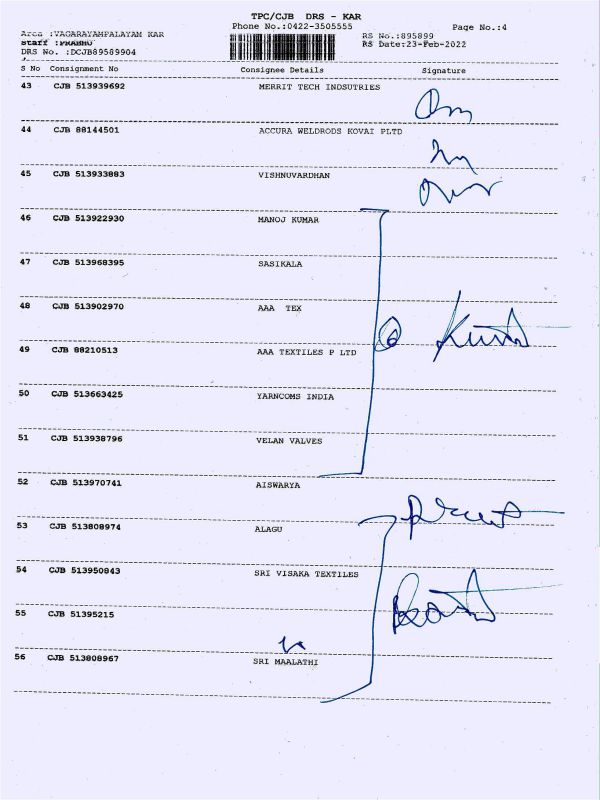 TPC/CJB DRS - KAR
Phone No.:0422-3505555 Page No.:4
Area :VAGARAYAMPALAYAM KAR RS No.:895899
Staff :PRABHU RS Date:23-Feb-2022
DRS No. :DCJB89589904
S No Consignment No Consignee Details Signature
43 CJB 513939692 MERRIT TECH INDSUTRIES
44 CJB 88144501 ACCURA WELDRODS KOVAI PLTD
45 CJB 513933883 VISHNUVARDHAN
46 CJB 513922930 MANOJ KUMAR
47 CJB 513968395 SASIKALA
48 CJB 513902970 AAA TEX
49 CJB 88210513 AAA TEXTILES P LTD
50 CJB 513663425 YARNCOMS INDIA
51 CJB 513938796 VELAN VALVES
52 CJB 513970741 AISWARYA
53 CJB 513808974 ALAGU
54 CJB 513950843 SRI VISAKA TEXTILES
55 CJB 51395215
56 CJB 513808967 SRI MAALATHI